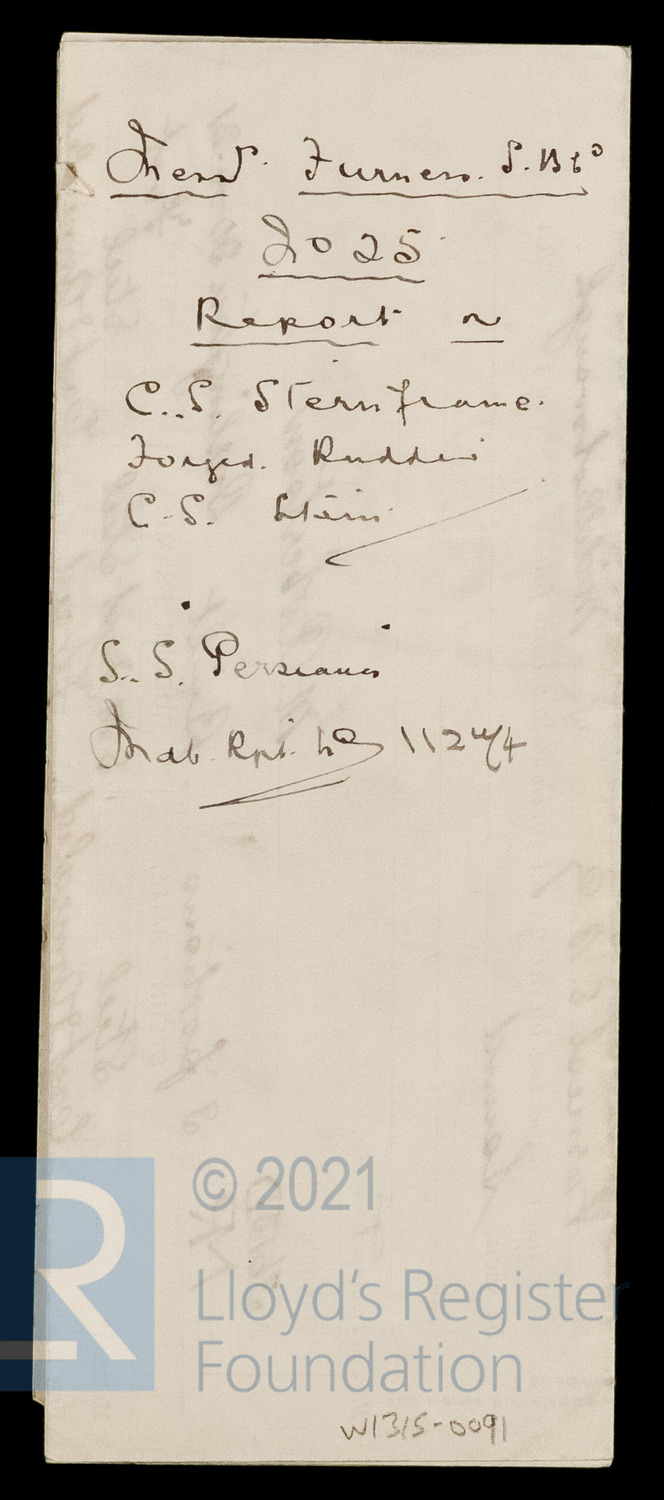 Messrs. Furness. S. B Co
No 25
Report on
C.S. Sternframe.
Forged. Rudder
C.S. Stem
S.S. Persiana
Mab. Rpt. No 11224
© 2021
Lloyd's Register
Foundation
W1315-0091